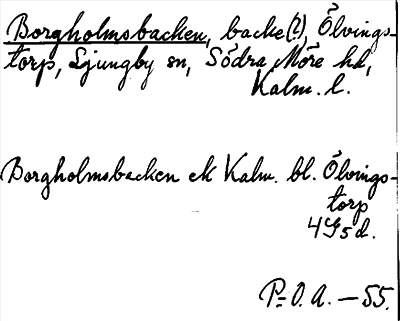 Borgholmsbacken, backe(?), Ölvings-
torp, Ljungby sn, Södra Möre hd,
Kalm. l.
Borgholmsbacken ek Kalm. bl. Ölvings-
torp
4G5d.
P.O.A. — 55.